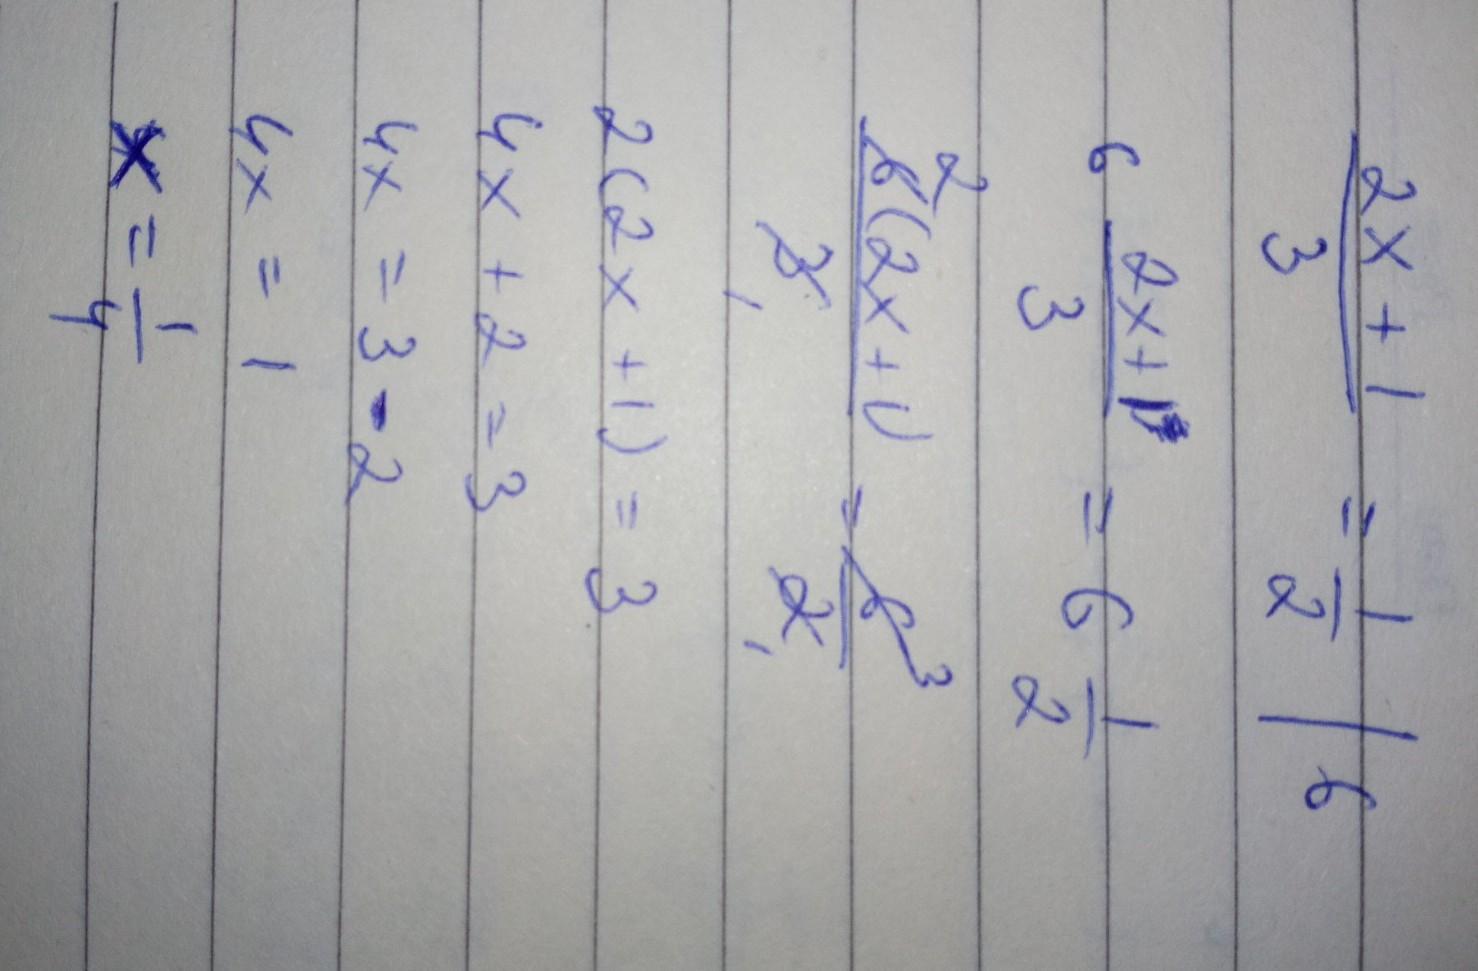 (2x+1)/3 = 1/2 | 6
6 (2x+1)/3 = 6 1/2
6(2x+1)/3 2 1 = 6/2 3 1
2(2x+1) = 3
4x + 2 = 3
4x = 3 - 2
4x = 1
x = 1/4